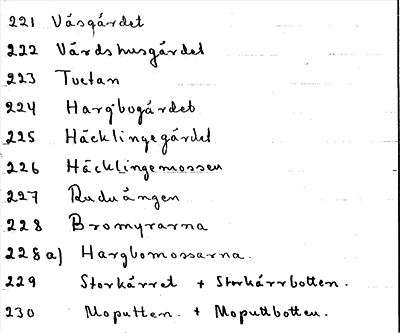 221 Våsgårdet
222 Vårdshusgårdet
223 Tvetan
224 Hargbogårdet
225 Häcklingegårdet
226 Häcklingemossen
227 Ruduängen
228 Bromyrarna
228 a) Hargbomossarna.
229 Storkärret + Storkärrbotten.
230 Moputten. + Moputtbotten.